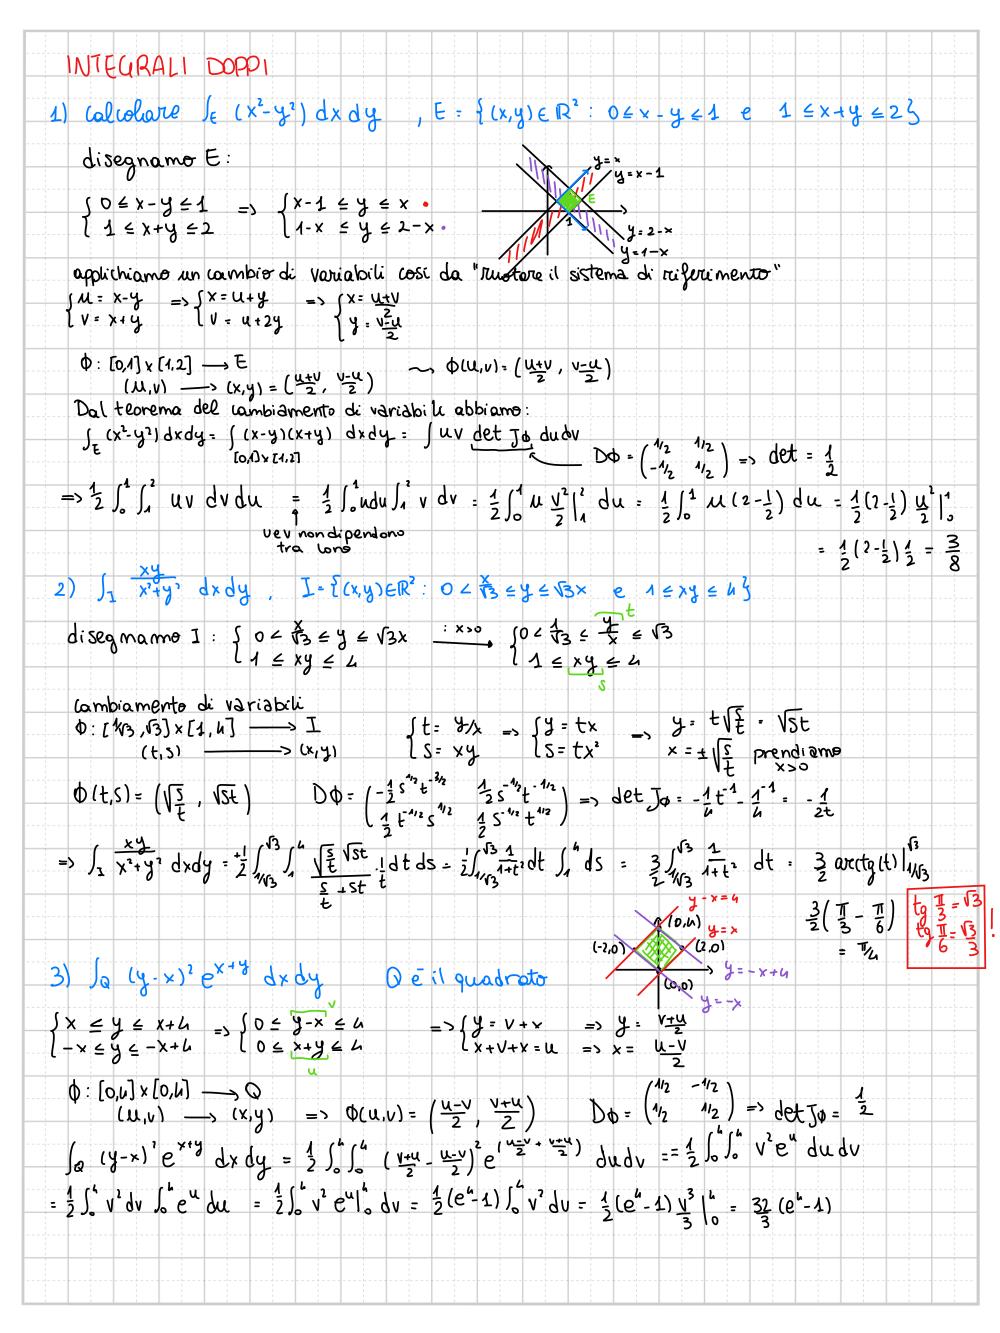 INTEGRALI DOPPI
1) calcolare ∫_E (x²-y²) dx dy , E = {(x,y)∈ℝ² : 0≤x-y≤1 e 1≤x+y≤2}
disegnamo E:
y=x
y=x-1
E
1
y=2-x
y=1-x
{ 0≤x-y≤1 => { x-1 ≤ y ≤ x
{ 1≤x+y≤2 { 1-x ≤ y ≤ 2-x
applichiamo un cambio di variabili così da "ruotare il sistema di riferimento"
{ u = x-y => { x = u+y => { x = (u+v)/2
{ v = x+y { v = u+2y { y = (v-u)/2
Φ: [0,1]×[1,2] → E ⇝ Φ(u,v) = ((u+v)/2, (v-u)/2)
(u,v) → (x,y) = ((u+v)/2, (v-u)/2)
Dal teorema del cambiamento di variabile abbiamo:
∫_E (x²-y²) dxdy = ∫_{[0,1]×[1,2]} (x-y)(x+y) dxdy = ∫ uv det JΦ dudv
DΦ = (1/2 1/2 ; -1/2 1/2) => det = 1/2
=> 1/2 ∫_0^1 ∫_1^2 uv dv du = 1/2 ∫_0^1 u du ∫_1^2 v dv = 1/2 ∫_0^1 u v²/2 |_1^2 du = 1/2 ∫_0^1 u (2-1/2) du = 1/2 (2-1/2) u²/2 |_0^1
u e v non dipendono
tra loro
= 1/2 (2-1/2) 1/2 = 3/8
2) ∫_I xy/(x²+y²) dx dy , I = {(x,y)∈ℝ² : 0 < x/√3 ≤ y ≤ √3x e 1≤xy≤4}
disegnamo I : { 0 < x/√3 ≤ y ≤ √3x : x>0 → { 0 < 1/√3 ≤ y/x ≤ √3 t
{ 1 ≤ xy ≤ 4 { 1 ≤ xy ≤ 4
s
cambiamento di variabili
Φ: [1/√3, √3]×[1,4] → I { t = y/x => { y = tx => y = t√(s/t) = √st
(t,s) → (x,y) { s = xy { s = tx² x = ±√(s/t) prendiamo
x>0
Φ(t,s) = (√(s/t), √st) DΦ = (-1/2 s^{1/2} t^{-3/2} 1/2 s^{-1/2} t^{-1/2} ; 1/2 t^{-1/2} s^{1/2} 1/2 s^{-1/2} t^{1/2}) => det JΦ = -1/4 t^{-1} - 1/4 t^{-1} = -1/2t
=> ∫_I xy/(x²+y²) dxdy = +1/2 ∫_{1/√3}^{√3} ∫_1^4 (√(s/t) √st)/(s/t + st) · 1/t dt ds = 1/2 ∫_{1/√3}^{√3} 1/(1+t²) dt ∫_1^4 ds = 3/2 ∫_{1/√3}^{√3} 1/(1+t²) dt = 3/2 arctg(t) |_{1/√3}^{√3}
3/2 (π/3 - π/6)
= π/4
tg π/3 = √3
tg π/6 = √3/3
!
y-x=4
(0,4)
y=x
(-2,0)
(2,0)
y=-x+4
(0,0)
y=-x
3) ∫_Q (y-x)² e^{x+y} dx dy Q è il quadrato
{ x ≤ y ≤ x+4 => { 0 ≤ y-x ≤ 4 v => { y = v+x => y = (v+u)/2
{ -x ≤ y ≤ -x+4 { 0 ≤ x+y ≤ 4 { x+v+x = u => x = (u-v)/2
u
Φ: [0,4]×[0,4] → Q
(u,v) → (x,y) => Φ(u,v) = ((u-v)/2, (v+u)/2) DΦ = (1/2 -1/2 ; 1/2 1/2) => det JΦ = 1/2
∫_Q (y-x)² e^{x+y} dx dy = 1/2 ∫_0^4 ∫_0^4 ((v+u)/2 - (u-v)/2)² e^{((u-v)/2 + (v+u)/2)} dudv == 1/2 ∫_0^4 ∫_0^4 v² e^u du dv
= 1/2 ∫_0^4 v² dv ∫_0^4 e^u du = 1/2 ∫_0^4 v² e^u |_0^4 dv = 1/2 (e⁴-1) ∫_0^4 v² dv = 1/2 (e⁴-1) v³/3 |_0^4 = 32/3 (e⁴-1)